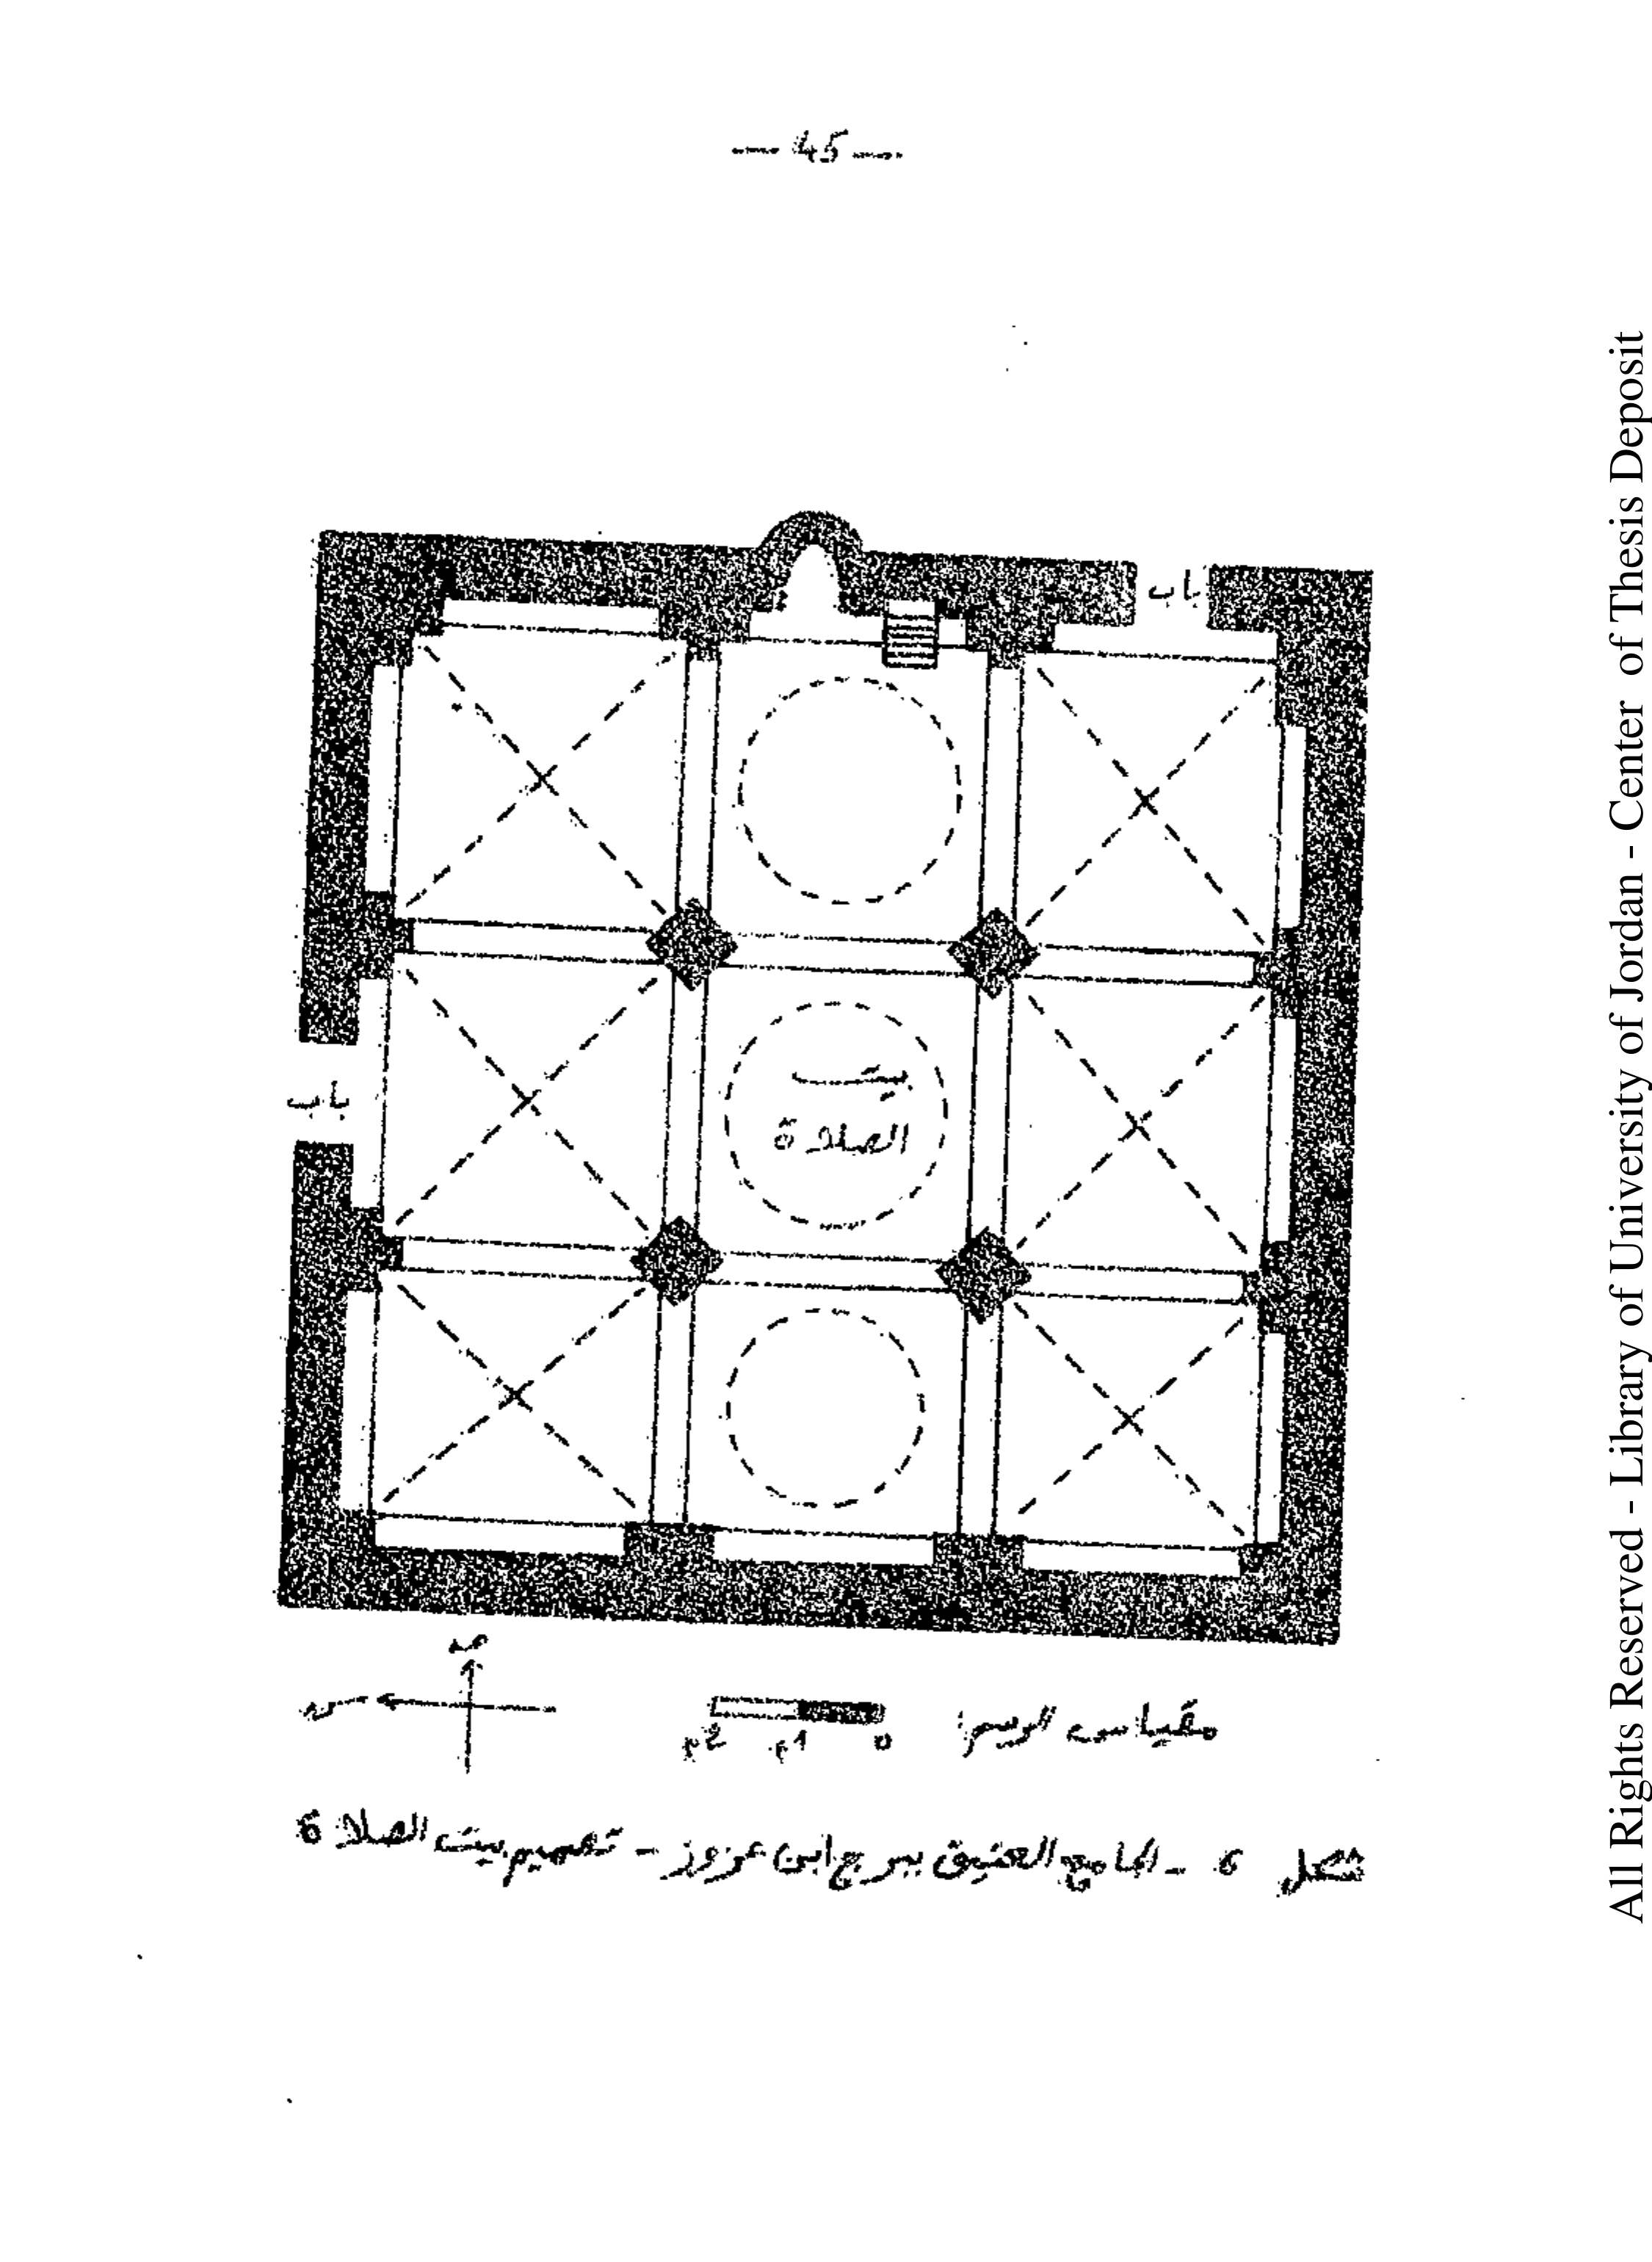 — 45 —
باب
بيت
الصلاة
باب
مقياس الرسم:
0 1م 2م
شكل 6 - الجامع العتيق ببرج ابن عزوز - تصميم بيت الصلاة
All Rights Reserved - Library of University of Jordan - Center of Thesis Deposit